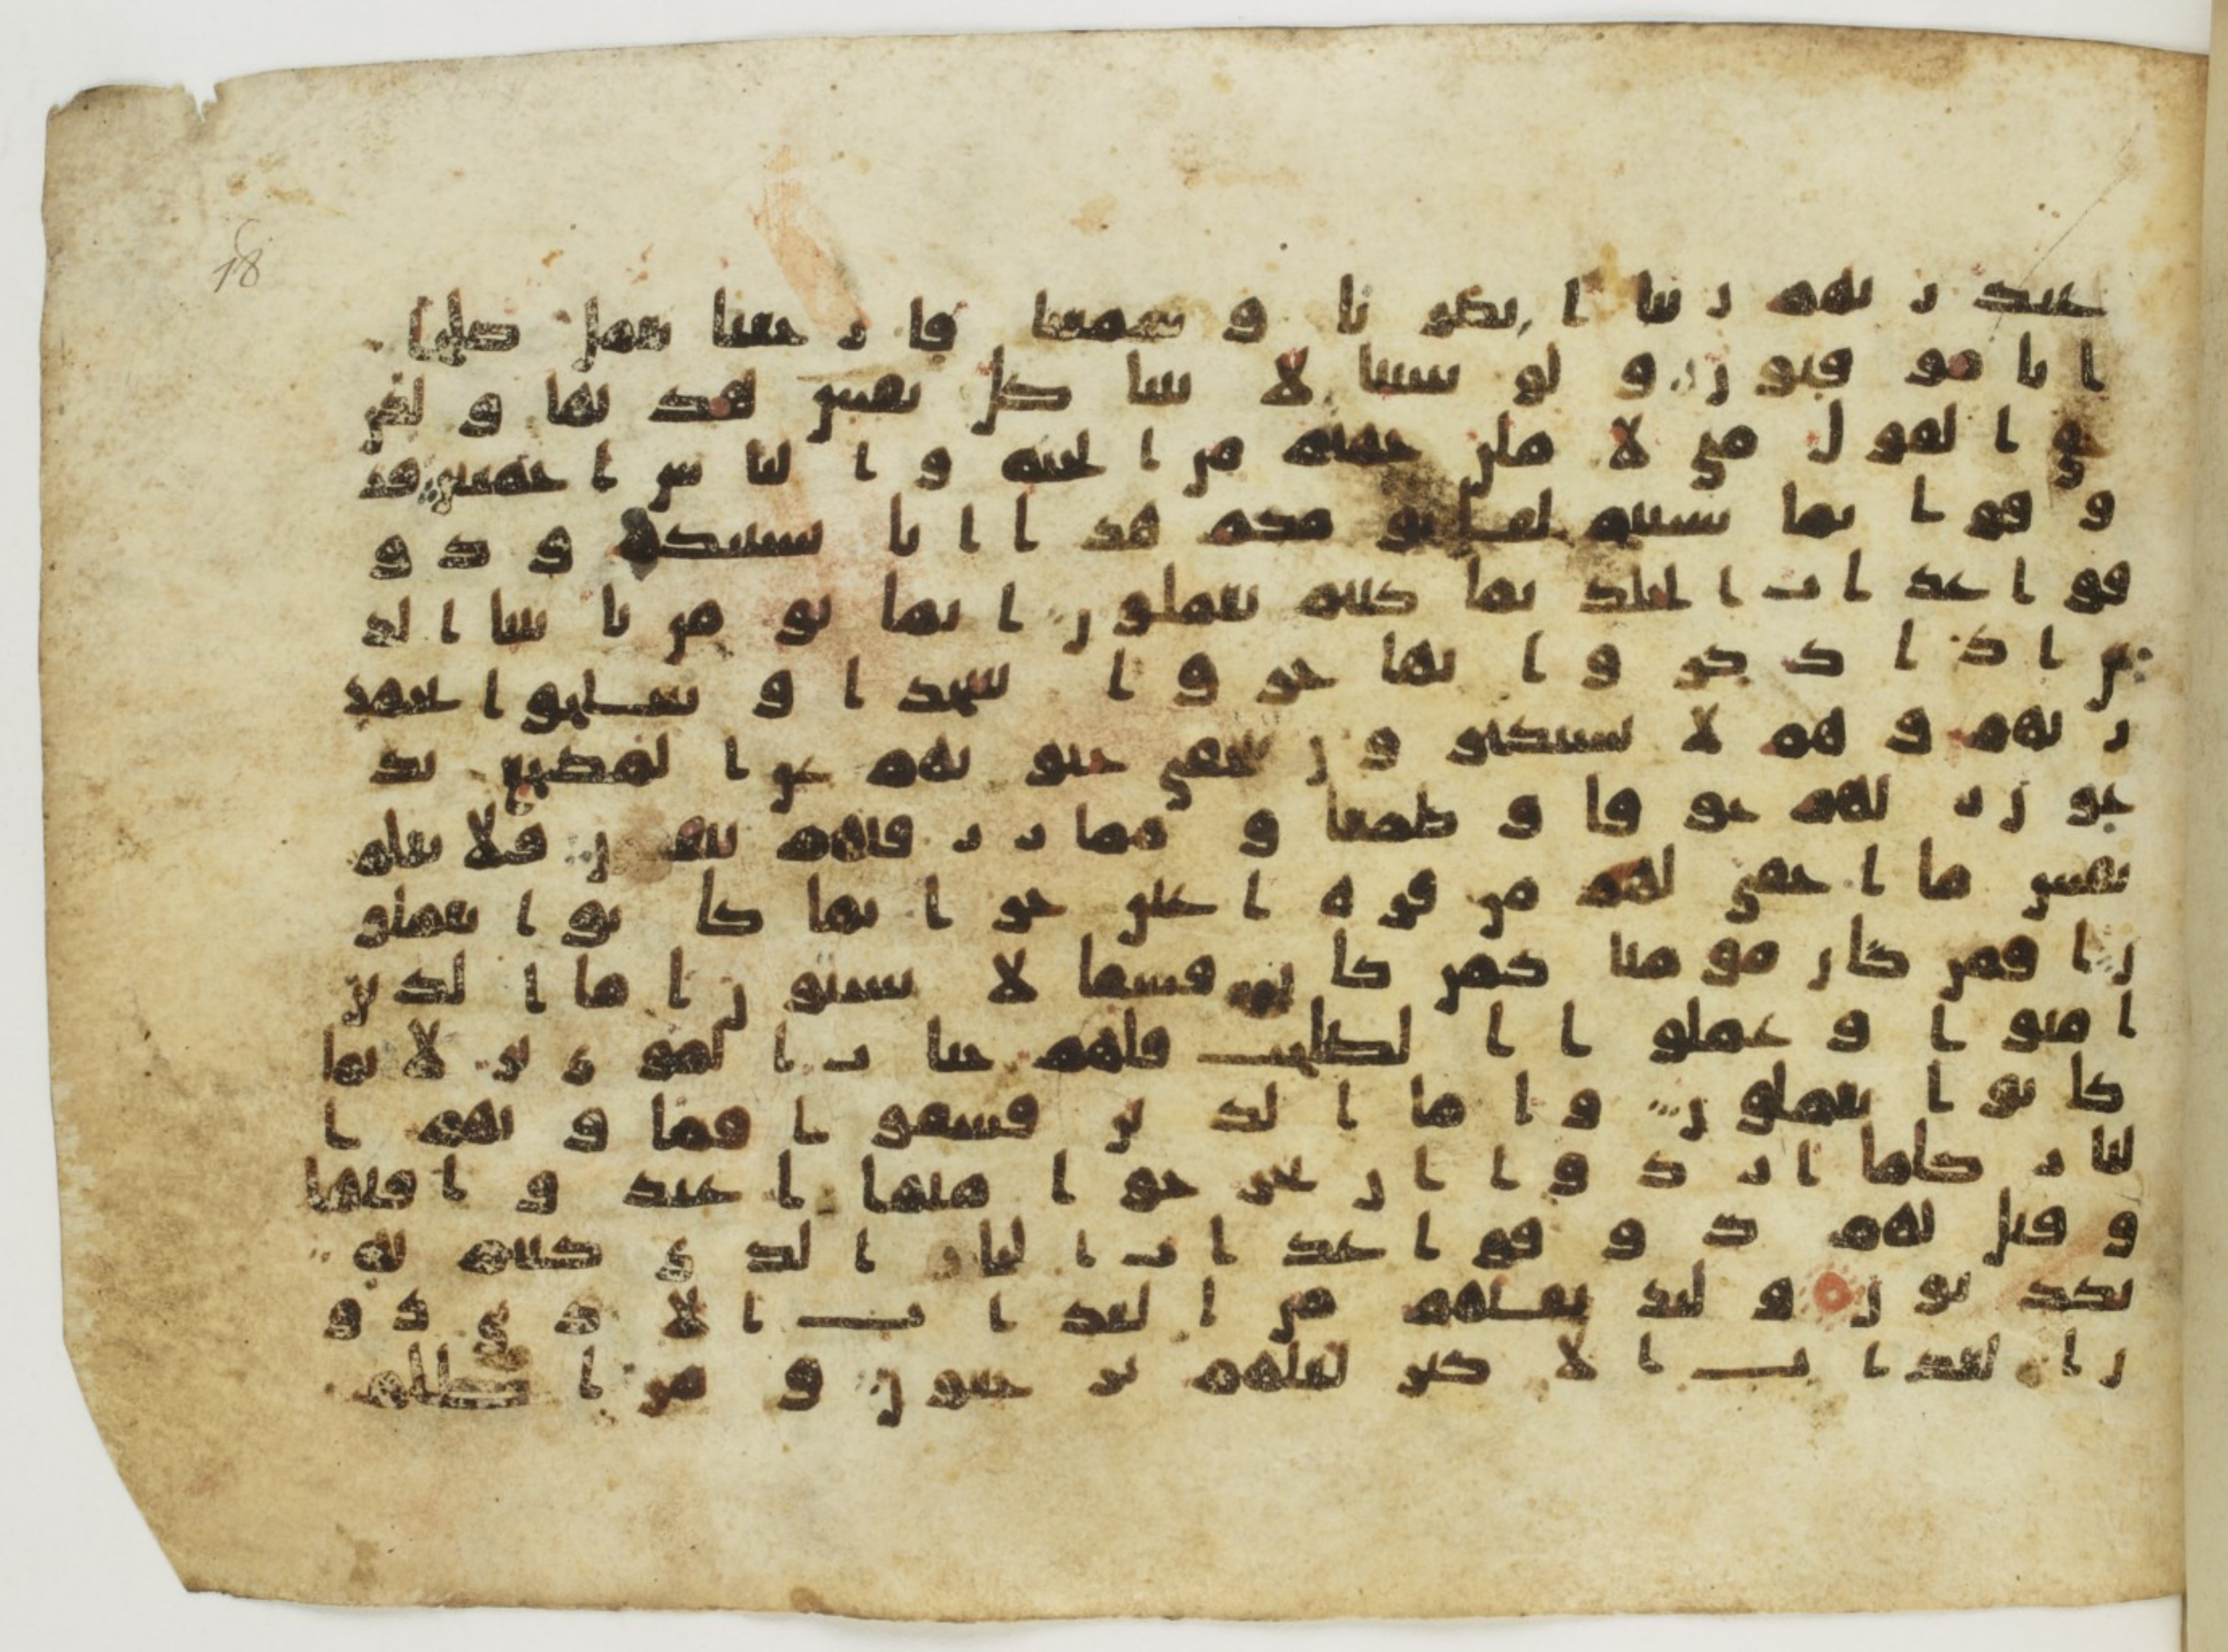 18
عند ربهم ربنا ابصرنا وسمعنا فارجعنا نعمل صلحا
انا موقنون ولو شينا لاتينا كل نفس هديها ولكن
حق القول مني لاملن جهنم من الجنه والناس اجمعين فذ
وقوا بما نسيتم لقا يومكم هذا انا نسينكم وذو
قوا عذاب الخلد بما كنتم تعملون انما يومن بايتنا الذ
ين اذا ذكروا بها خروا سجدا وسبحوا بحمد
ربهم وهم لا يستكبرون تتجافى جنوبهم عن المضجع يد
عون ربهم خوفا وطمعا ومما رزقنهم ينفقون فلا تعلم
نفس ما اخفي لهم من قره اعين جزا بما كانوا يعملو
ن افمن كان مومنا كمن كان فسقا لا يستون اما الذين
امنوا وعملوا الصلحت فلهم جنات الماوى نزلا بما
كانوا يعملون واما الذين فسقوا فماويهم ا
لنار كلما ارادوا ان يخرجوا منها اعيدوا فيها
وقيل لهم ذوقوا عذاب النار الذي كنتم به
تكذبون ولنذيقنهم من العذاب الادنى دو
ن العذاب الاكبر لعلهم يرجعون ومن اظلم